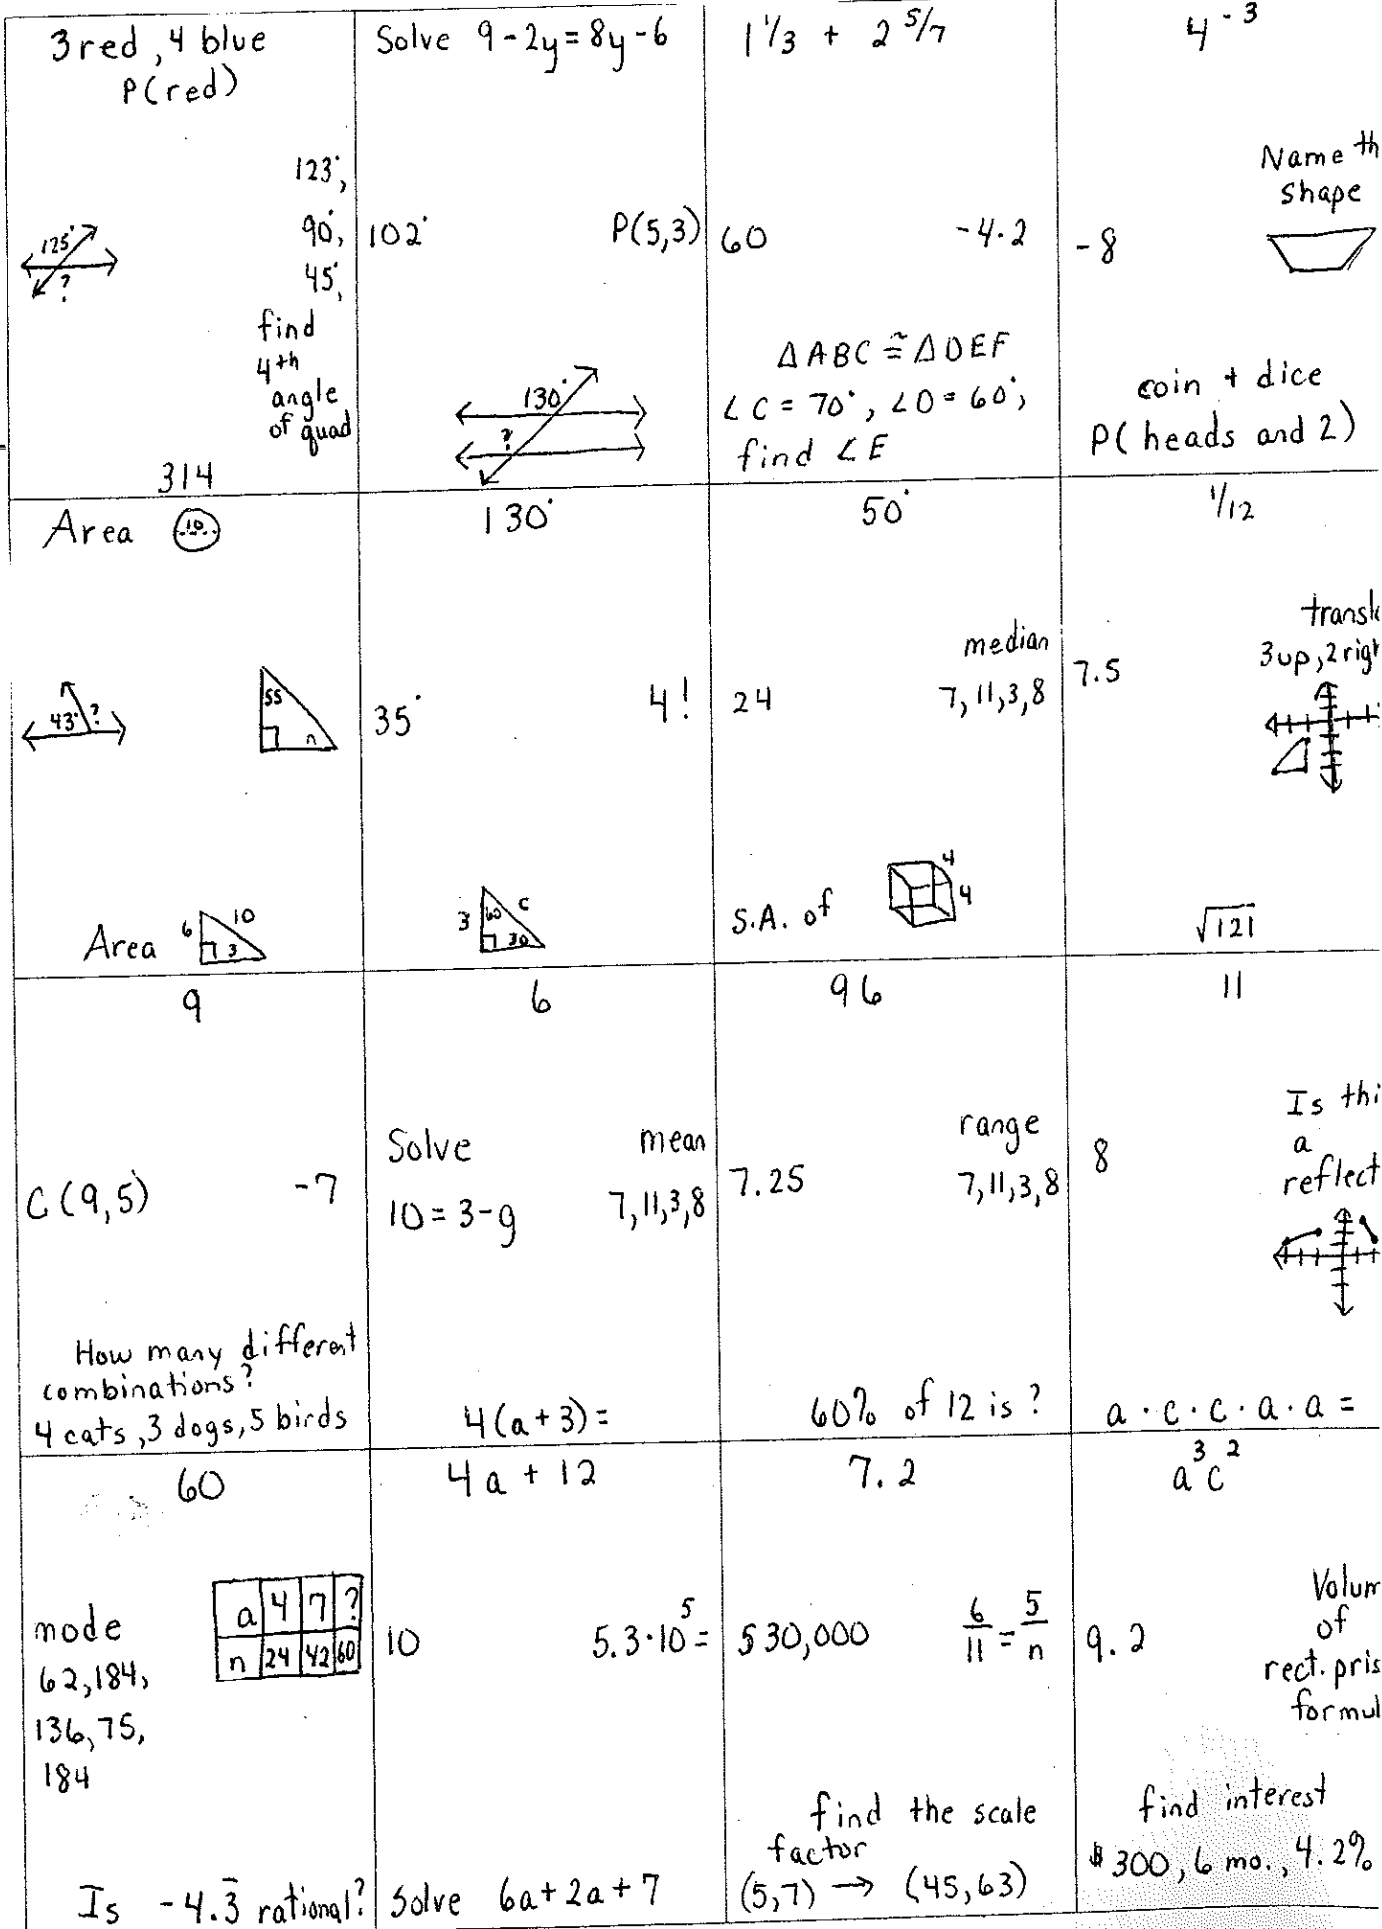 3 red, 4 blue
P(red)
125°
?
123°,
90°,
45°,
find
4th
angle
of quad
314
Solve 9-2y=8y-6
102°
P(5,3)
130°
?
1 1/3 + 2 5/7
60
-4.2
ΔABC ≅ ΔDEF
∠C = 70°, ∠D = 60°,
find ∠E
4⁻³
-8
Name th
shape
coin + dice
P(heads and 2)
Area 10
43° ?
55
n
Area 6 10
3
130°
35°
4!
3 60 c
30
50°
24
median
7,11,3,8
S.A. of 4
4
1/12
7.5
transl
3up,2righ
√121
9
C(9,5)
-7
How many different
combinations?
4 cats, 3 dogs, 5 birds
6
Solve
10=3-g
mean
7,11,3,8
4(a+3)=
96
7.25
range
7,11,3,8
60% of 12 is?
11
8
Is thi
a
reflect
a·c·c·a·a=
60
mode
62,184,
136,75,
184
a 4 7 ?
n 24 42 60
Is -4.3̅ rational?
4a + 12
10
5.3·10⁵=
Solve 6a+2a+7
7.2
530,000
6/11 = 5/n
find the scale
factor
(5,7) → (45,63)
a³c²
9.2
Volum
of
rect. pris
formul
find interest
$300, 6 mo., 4.2%